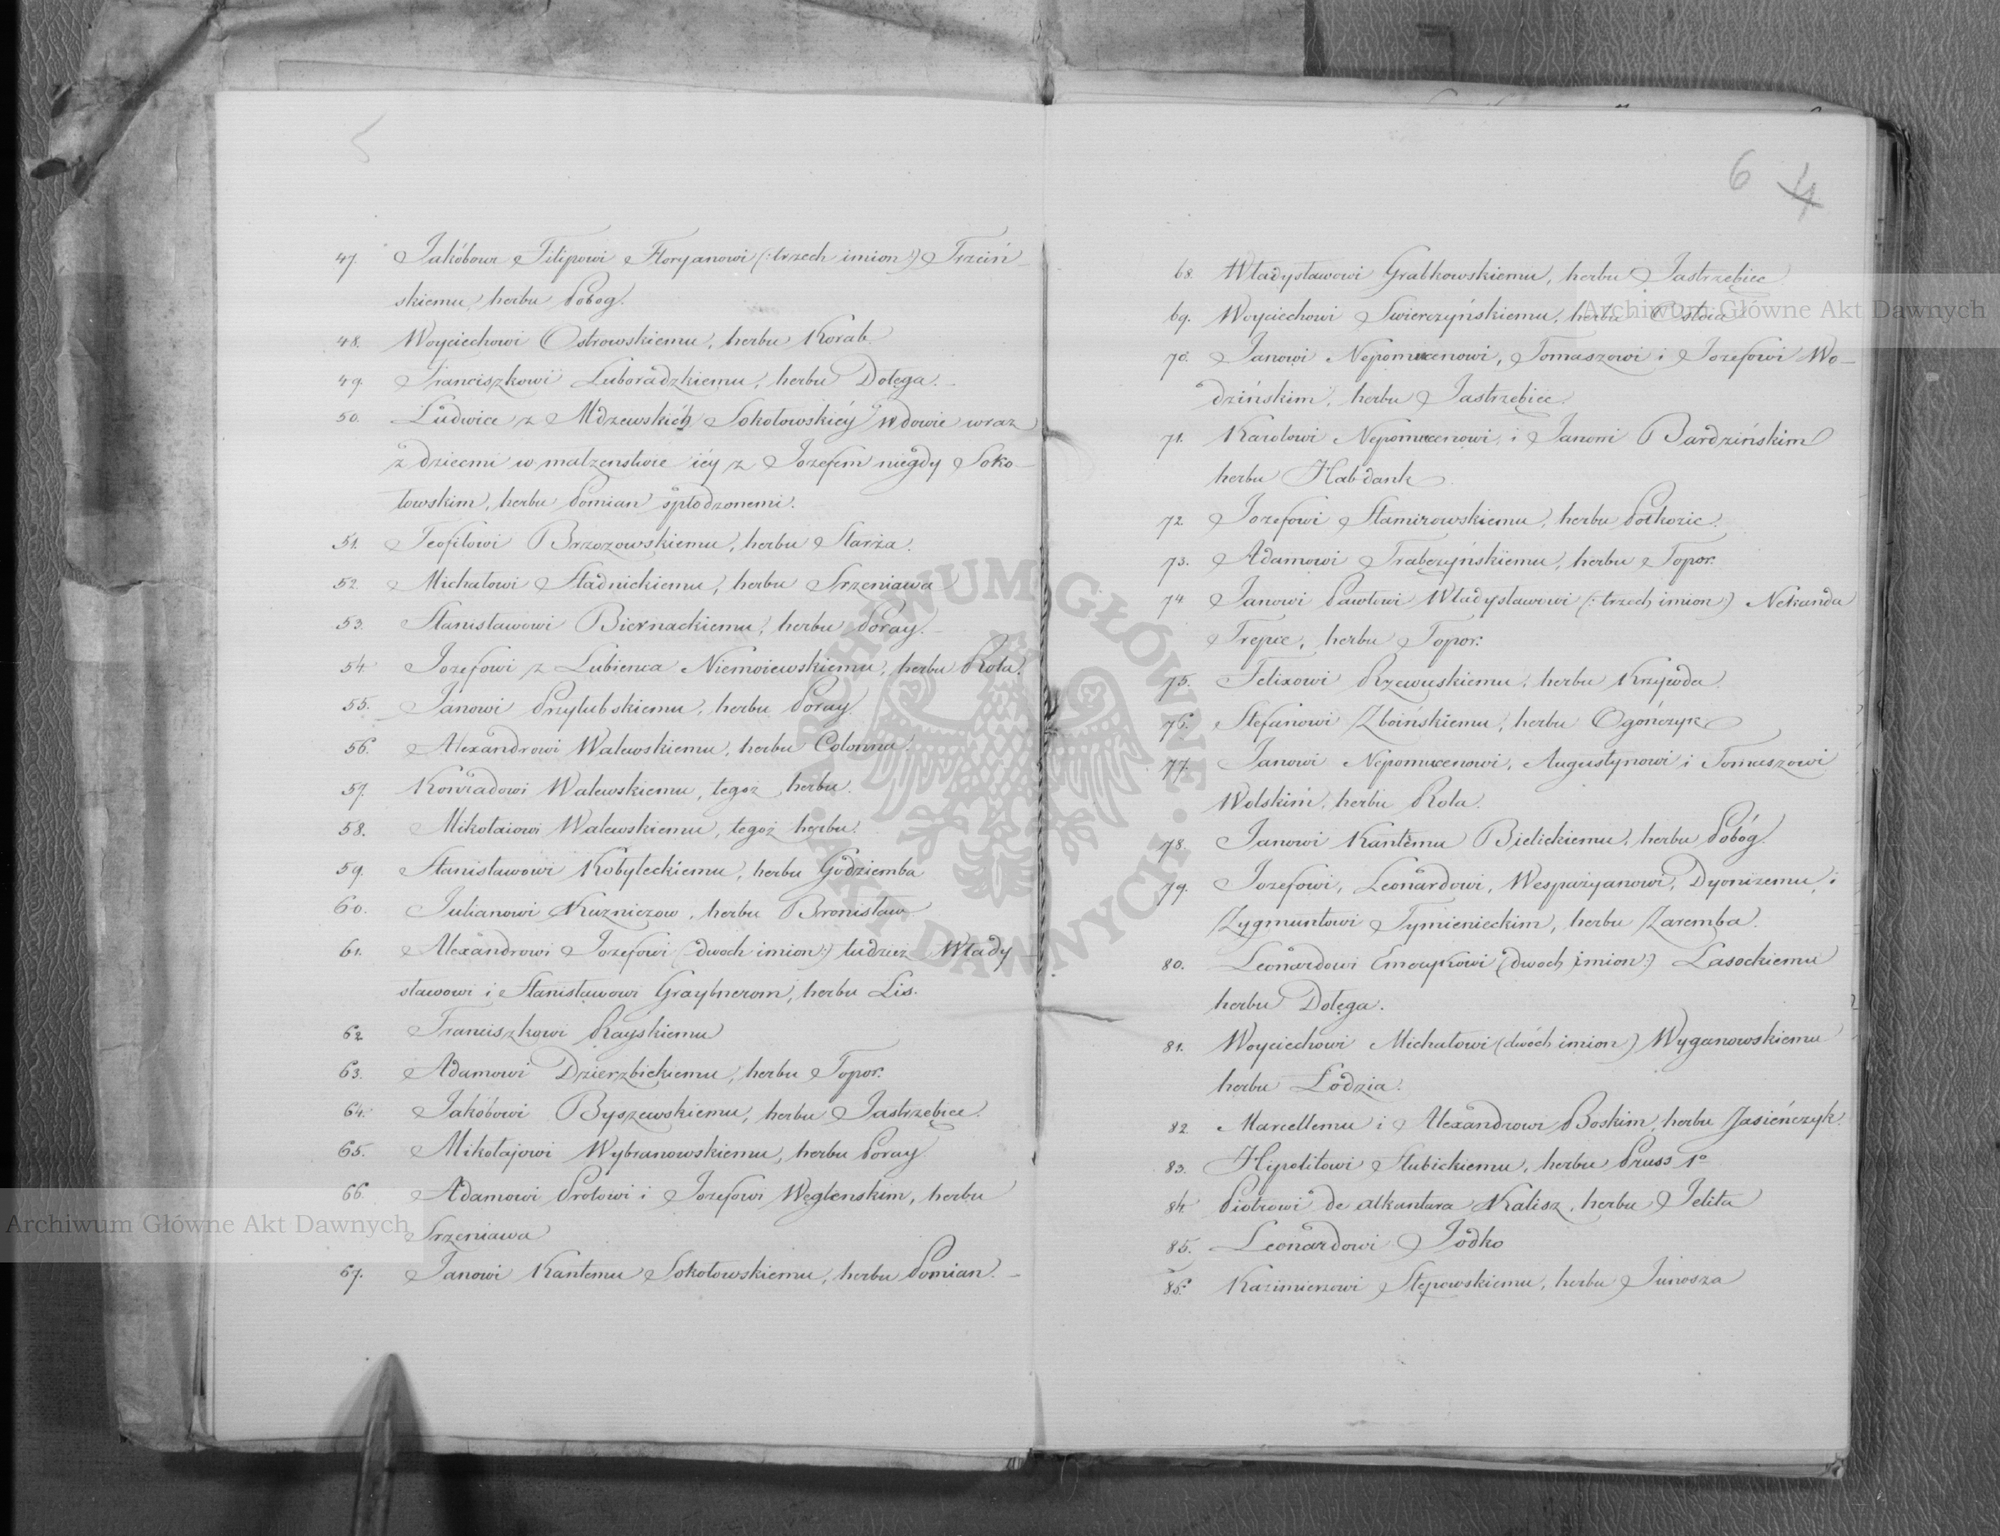 5
47. Jakóbowi Filipowi Floryanowi (: trzech imion :) Trzciń-
skiemu, herbu Pobog.
48. Woyciechowi Ostrowskiemu, herbu Korab.
49. Franciszkowi Luboradzkiemu, herbu Dołęga.
50. Ludwice z Mdzewskich Sokołowskiéy wdowie wraz
z dziecmi w małżenstwie iéy z Jozefem niegdy Soko-
łowskim, herbu Pomian spłodzonemi.
51. Teofilowi Brzozowskiemu, herbu Starża.
52. Michałowi Stadnickiemu, herbu Srzeniawa
53. Stanisławowi Biernackiemu, herbu Poray.
54. Jozefowi z Lubienca Niemoiewskiemu, herbu Rola.
55. Janowi Przyłubskiemu, herbu Poray.
56. Alexandrowi Walewskiemu, herbu Colonna.
57. Konradowi Walewskiemu, tegoż herbu.
58. Mikołaiowi Walewskiemu, tegoż herbu.
59. Stanisławowi Kobyłeckiemu, herbu Godziemba
60. Julianowi Kuzniczow, herbu Bronisław
61. Alexandrowi Jozefowi (: dwoch imion :) tudzież Włady
sławowi i Stanisławowi Graybnerom, herbu Lis.
62. Franciszkowi Rayskiemu
63. Adamowi Dzierzbickiemu, herbu Topor.
64. Jakóbowi Byszewskiemu, herbu Jastrzębiec.
65. Mikołajowi Wybranowskiemu, herbu Poray
66. Adamowi Protowi i Jozefowi Węglenskim, herbu
Srzeniawa
67. Janowi Kantemu Sokołowskiemu, herbu Pomian.
6 4
68. Władysławowi Grabkowskiemu, herbu Jastrzębiec
69. Woyciechowi Swierczyńskiemu, herbu Ostoia
70. Janowi Nepomucenowi, Tomaszowi i Jozefowi Wo-
dzińskim, herbu Jastrzębiec.
71. Karolowi Nepomucenowi i Janowi Bardzińskim
herbu Habdank
72. Jozefowi Stamirowskiemu, herbu Połkozic.
73. Adamowi Trąbczyńskiemu, herbu Topor.
74. Janowi Pawłowi Władysławowi (: trzech imion :) Nekanda
Trepce, herbu Topor.
75. Felixowi Rzewuskiemu, herbu Krzywda
76. Stefanowi Zboińskiemu, herbu Ogończyk
77. Janowi Nepomucenowi, Augustynowi i Tomaszowi
Wolskim, herbu Rola.
78. Janowi Kantemu Bielickiemu, herbu Pobóg
79. Jozefowi, Leonardowi, Wespazyanowi, Dyonizemu i
Zygmuntowi Tymienieckim, herbu Zaremba.
80. Leonardowi Emerykowi (: dwoch imion :) Lasockiemu
herbu Dołęga.
81. Woyciechowi Michałowi (: dwóch imion :) Wyganowskiemu
herbu Łodzia.
82. Marcellemu i Alexandrowi Boskim, herbu Jasieńczyk.
83. Hipolitowi Słubickiemu, herbu Pruss 1º
84. Piotrowi de Alkantara Kalisz, herbu Jelita
85. Leonardowi Jodko
86. Kazimierzowi Stępowskiemu, herbu Junosza
Archiwum Główne Akt Dawnych
Archiwum Główne Akt Dawnych
ARCHIWUM GŁÓWNE AKT DAWNYCH